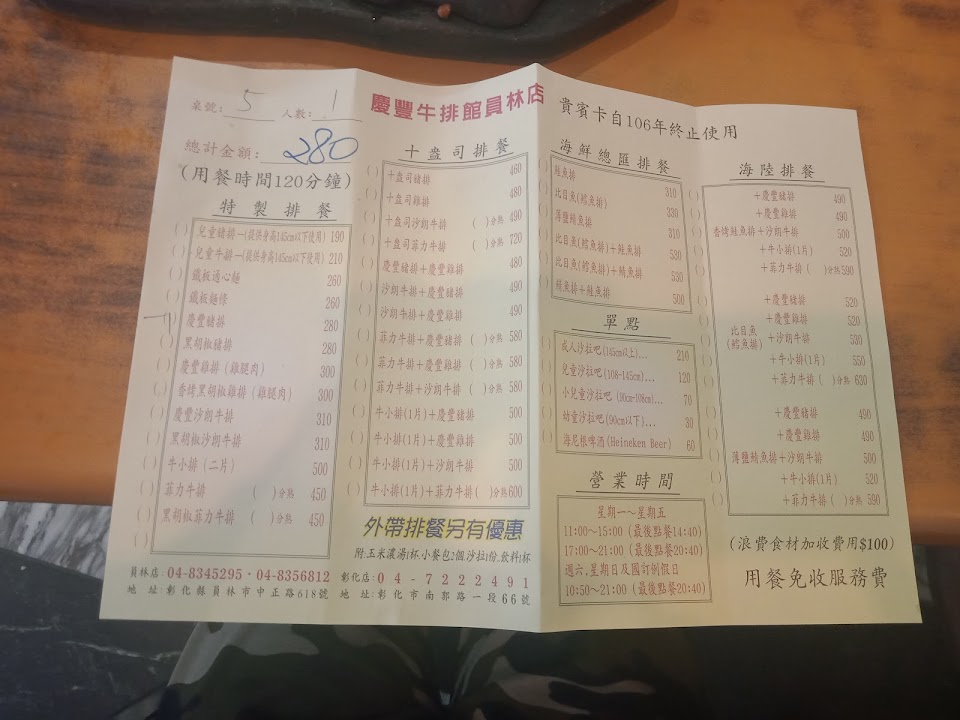 慶豐牛排館員林店
貴賓卡自106年終止使用
桌號: 5 人數: 1
總計金額: 280
(用餐時間120分鐘)
特製排餐
( ) 兒童豬排－(提供身高145cm以下使用) 190
( ) 兒童牛排－(提供身高145cm以下使用) 210
( ) 鐵板通心麵 260
( ) 鐵板麵條 260
( ) 慶豐豬排 280
( ) 黑胡椒豬排 280
( ) 慶豐雞排 (雞腿肉) 300
( ) 香烤黑胡椒雞排 (雞腿肉) 300
( ) 慶豐沙朗牛排 310
( ) 黑胡椒沙朗牛排 310
( ) 牛小排 (二片) 500
( ) 菲力牛排 ( )分熟 450
( ) 黑胡椒菲力牛排 ( )分熟 450
( )
十盎司排餐
( ) 十盎司豬排 460
( ) 十盎司雞排 480
( ) 十盎司沙朗牛排 ( )分熟 490
( ) 十盎司菲力牛排 ( )分熟 720
( ) 慶豐豬排＋慶豐雞排 480
( ) 沙朗牛排＋慶豐豬排 490
( ) 沙朗牛排＋慶豐雞排 490
( ) 菲力牛排＋慶豐豬排 ( )分熟 580
( ) 菲力牛排＋慶豐雞排 ( )分熟 580
( ) 菲力牛排＋沙朗牛排 ( )分熟 580
( ) 牛小排(1片)＋慶豐豬排 500
( ) 牛小排(1片)＋慶豐雞排 500
( ) 牛小排(1片)＋沙朗牛排 500
( ) 牛小排(1片)＋菲力牛排( )分熟600
外帶排餐另有優惠
附:玉米濃湯1杯.小餐包2個.沙拉1份.飲料1杯
海鮮總匯排餐
( ) 鮭魚排 310
( ) 比目魚(鱈魚排) 330
( ) 薄鹽鯖魚排 310
( ) 比目魚(鱈魚排)＋鮭魚排 530
( ) 比目魚(鱈魚排)＋鯖魚排 530
( ) 鯖魚排＋鮭魚排 500
單點
( ) 成人沙拉吧(145cm以上)... 210
( ) 兒童沙拉吧(108-145cm)... 120
( ) 小兒童沙拉吧 (90cm-108cm)... 70
( ) 幼童沙拉吧(90cm以下)... 30
( ) 海尼根啤酒(Heineken Beer) 60
營業時間
星期一～星期五
11:00～15:00 (最後點餐14:40)
17:00～21:00 (最後點餐20:40)
週六,星期日及國訂例假日
10:50～21:00 (最後點餐20:40)
海陸排餐
( ) ＋慶豐豬排 490
( ) ＋慶豐雞排 490
( ) 香烤鮭魚排＋沙朗牛排 500
( ) ＋牛小排(1片) 520
( ) ＋菲力牛排 ( )分熟590
( ) ＋慶豐豬排 520
( ) ＋慶豐雞排 520
( ) 比目魚(鱈魚排) ＋沙朗牛排 530
( ) ＋牛小排(1片) 550
( ) ＋菲力牛排 ( )分熟 630
( ) ＋慶豐豬排 490
( ) ＋慶豐雞排 490
( ) 薄鹽鯖魚排＋沙朗牛排 500
( ) ＋牛小排(1片) 520
( ) ＋菲力牛排 ( )分熟 590
(浪費食材加收費用$100)
用餐免收服務費
員林店: 04-8345295・04-8356812
地 址:彰化縣員林市中正路618號
彰化店: 04-7222491
地 址:彰化市南郭路一段66號